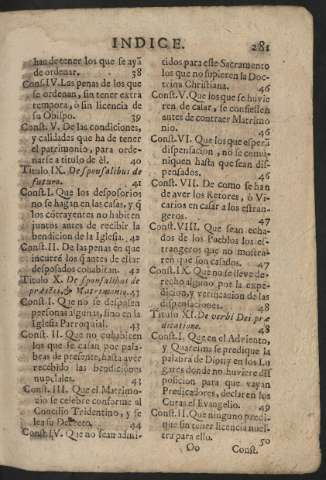 INDICE.
281
han de tener los que se ayā
de ordenar. 38
Const. IV. Las penas de los que
se ordenan, sin tener extra
tempora, ò sin licencia de
su Obispo. 39
Const. V. De las condiciones,
y calidades que ha de tener
el patrimonio, para orde-
narse a titulo de èl. 40
Titulo IX. De sponsalibus de
futuro. 41
Const. I. Que los desposorios
no se hagan en las casas, y q̄
los cōtrayentes no habiten
juntos antes de recibir la
bendicion de la Iglesia. 42
Const. II. De las penas en que
incurrē los q̄ antes de estar
desposados cohabitan. 42
Titulo X. De sponsalibus de
præsenti, & Matrimonio. 43
Const. I. Que no se desposen
personas algunas, sino en la
Iglesia Parroquial. 43
Const. II. Que no cohabiten
los que se casan por pala-
bras de presente, hasta aver
recebido las bendiciones
nupciales. 43
Const. III. Que el Matrimo-
nio se celebre conforme al
Concilio Tridentino, y se
lea su Decreto. 44
Const. IV. Que no sean admi-
tidos para este Sacramento
los que no supieren la Doc-
trina Christiana. 46
Const. V. Que los que se huvie
ren de casar, se confiessen
antes de contraer Matrimo
nio. 46
Const. VI. Que los que esperā
dispensacion, no se comu-
niquen hasta que sean dis-
pensados. 46
Const. VII. De como se han
de aver los Retores, ò Vi-
carios en casar a los estran-
geros. 47
Const. VIII. Que sean echa-
dos de los Pueblos los es-
trangeros que no mostra-
ren que son casados. 47
Const. IX. Que no se lleve de-
recho alguno por la expe-
dicion, y verificacion de las
dispensaciones. 48
Titulo XI. De verbi Dei præ
dicatione. 48
Const. I. Que en el Adviento,
y Quaresma se predique la
palabra de Dios; y en los Lu
gares donde no huviere dis
posicion para que vayan
Predicadores, declaren los
Curas el Evangelio. 49
Const. II. Que ninguno predi-
que sin tener licencia nues-
tra para ello. 50
Oo Const.